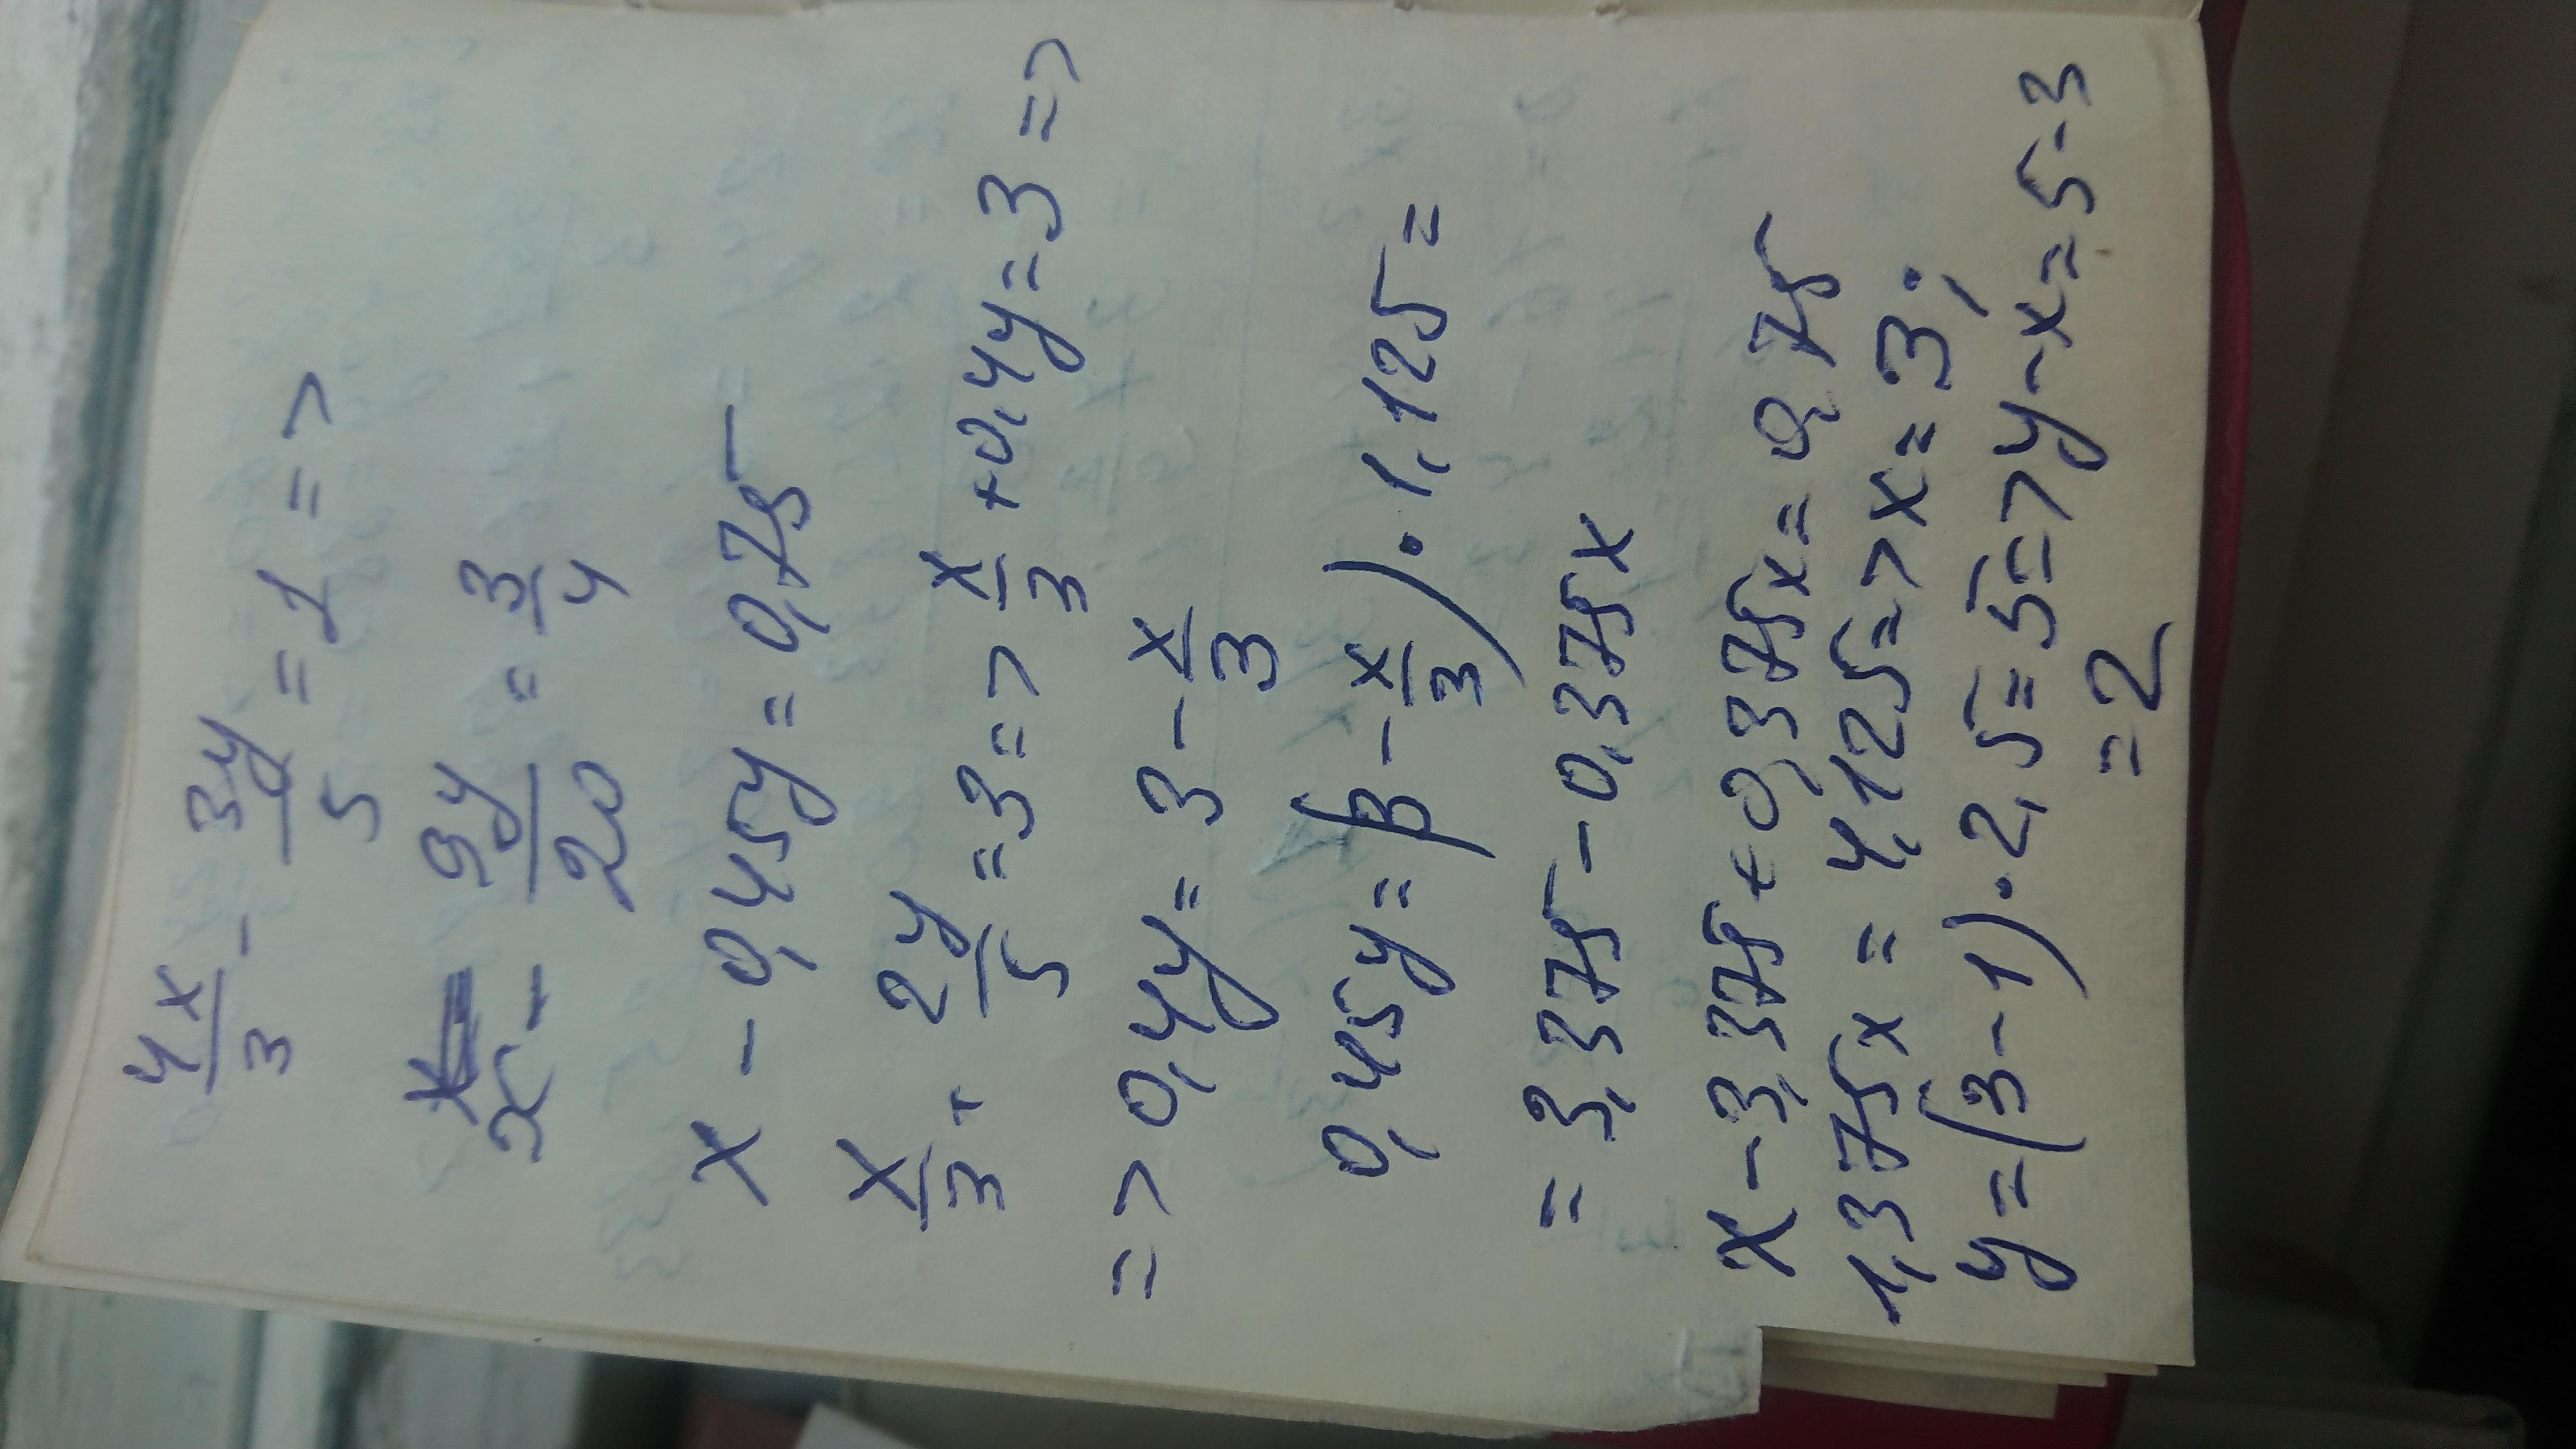 4x/3 - 3y/5 = 1 =>
x - 9y/20 = 3/4
x - 0,45y = 0,75
x/3 + 2y/5 = 3 => x/3 + 0,4y = 3 =>
=> 0,4y = 3 - x/3
0,45y = (3 - x/3) · 1,125 =
= 3,375 - 0,375x
x - 3,375 + 0,375x = 0,75
1,375x = 4,125 => x = 3;
y = (3 - 1) · 2,5 = 5 => y - x = 5 - 3
= 2